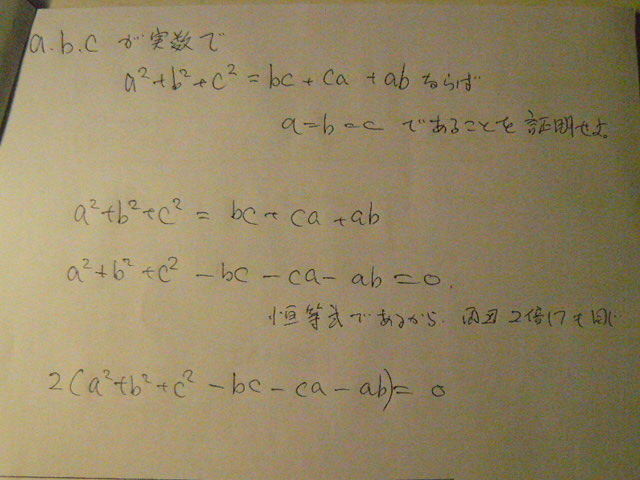 a.b.c が実数で
a²+b²+c² = bc+ca+ab ならば
a=b=c であることを証明せよ。
a²+b²+c² = bc+ca+ab
a²+b²+c² -bc-ca-ab=0.
恒等式であるから、両辺2倍しても同じ
2(a²+b²+c² -bc-ca-ab)=0